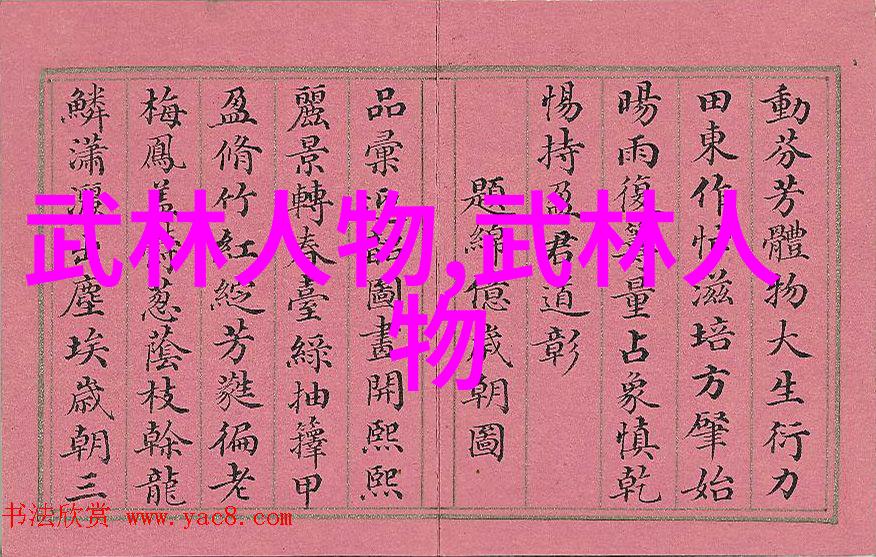 動芬芳體物大生衍力
田東作恒滋培方肇始
暘雨復量占象慎乾
惕持盈君道彰
題綿億歲朝圖
品彙圖畫開熙熙
麗景轉春臺綠抽籜甲
盈脩竹紅綻芳蕤徧老
梅鳳蓋蔥蔭枝榦龍
鱗瀟灑出塵埃歲朝三
武林人物,武林人
物
书法欣赏 www.yac8.com